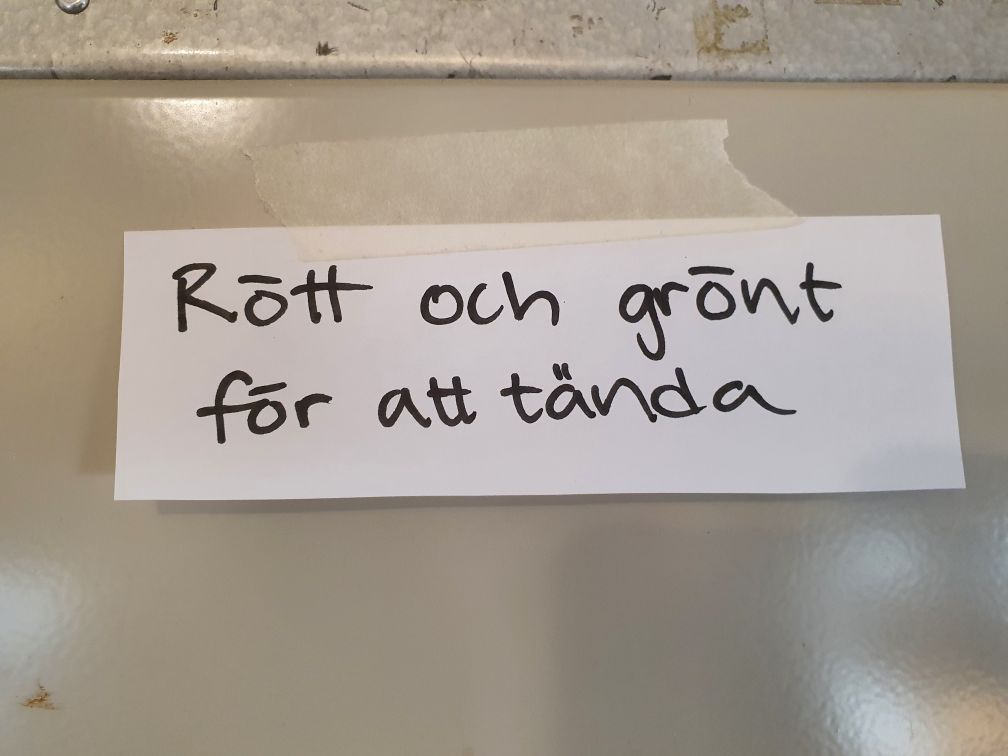 Rött och grönt
för att tända